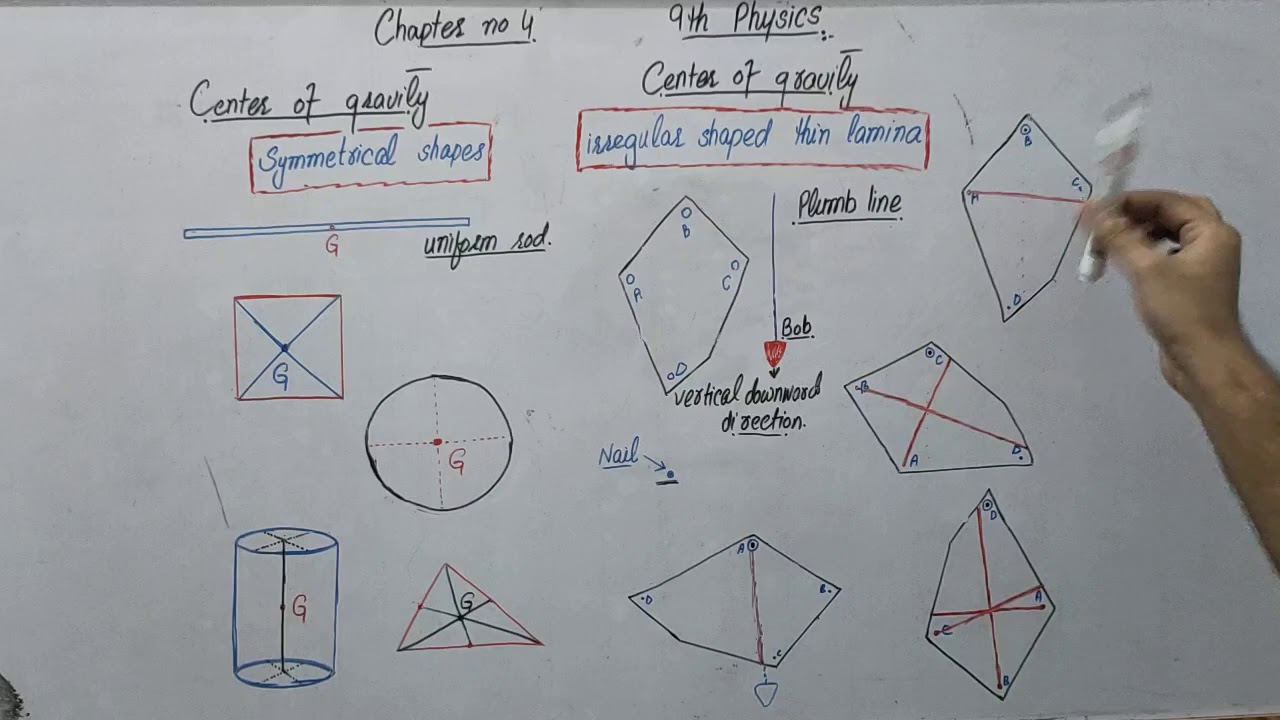 Chapter no 4.
9th Physics :-
Center of gravity
Symmetrical shapes
G
uniform rod.
G
G
G
G
Center of gravity
irregular shaped thin lamina
Plumb line
B
A
C
D
Bob.
vertical downward
direction.
Nail
A
D
B
C
B
A
C
D
C
B
A
D
D
A
C
B